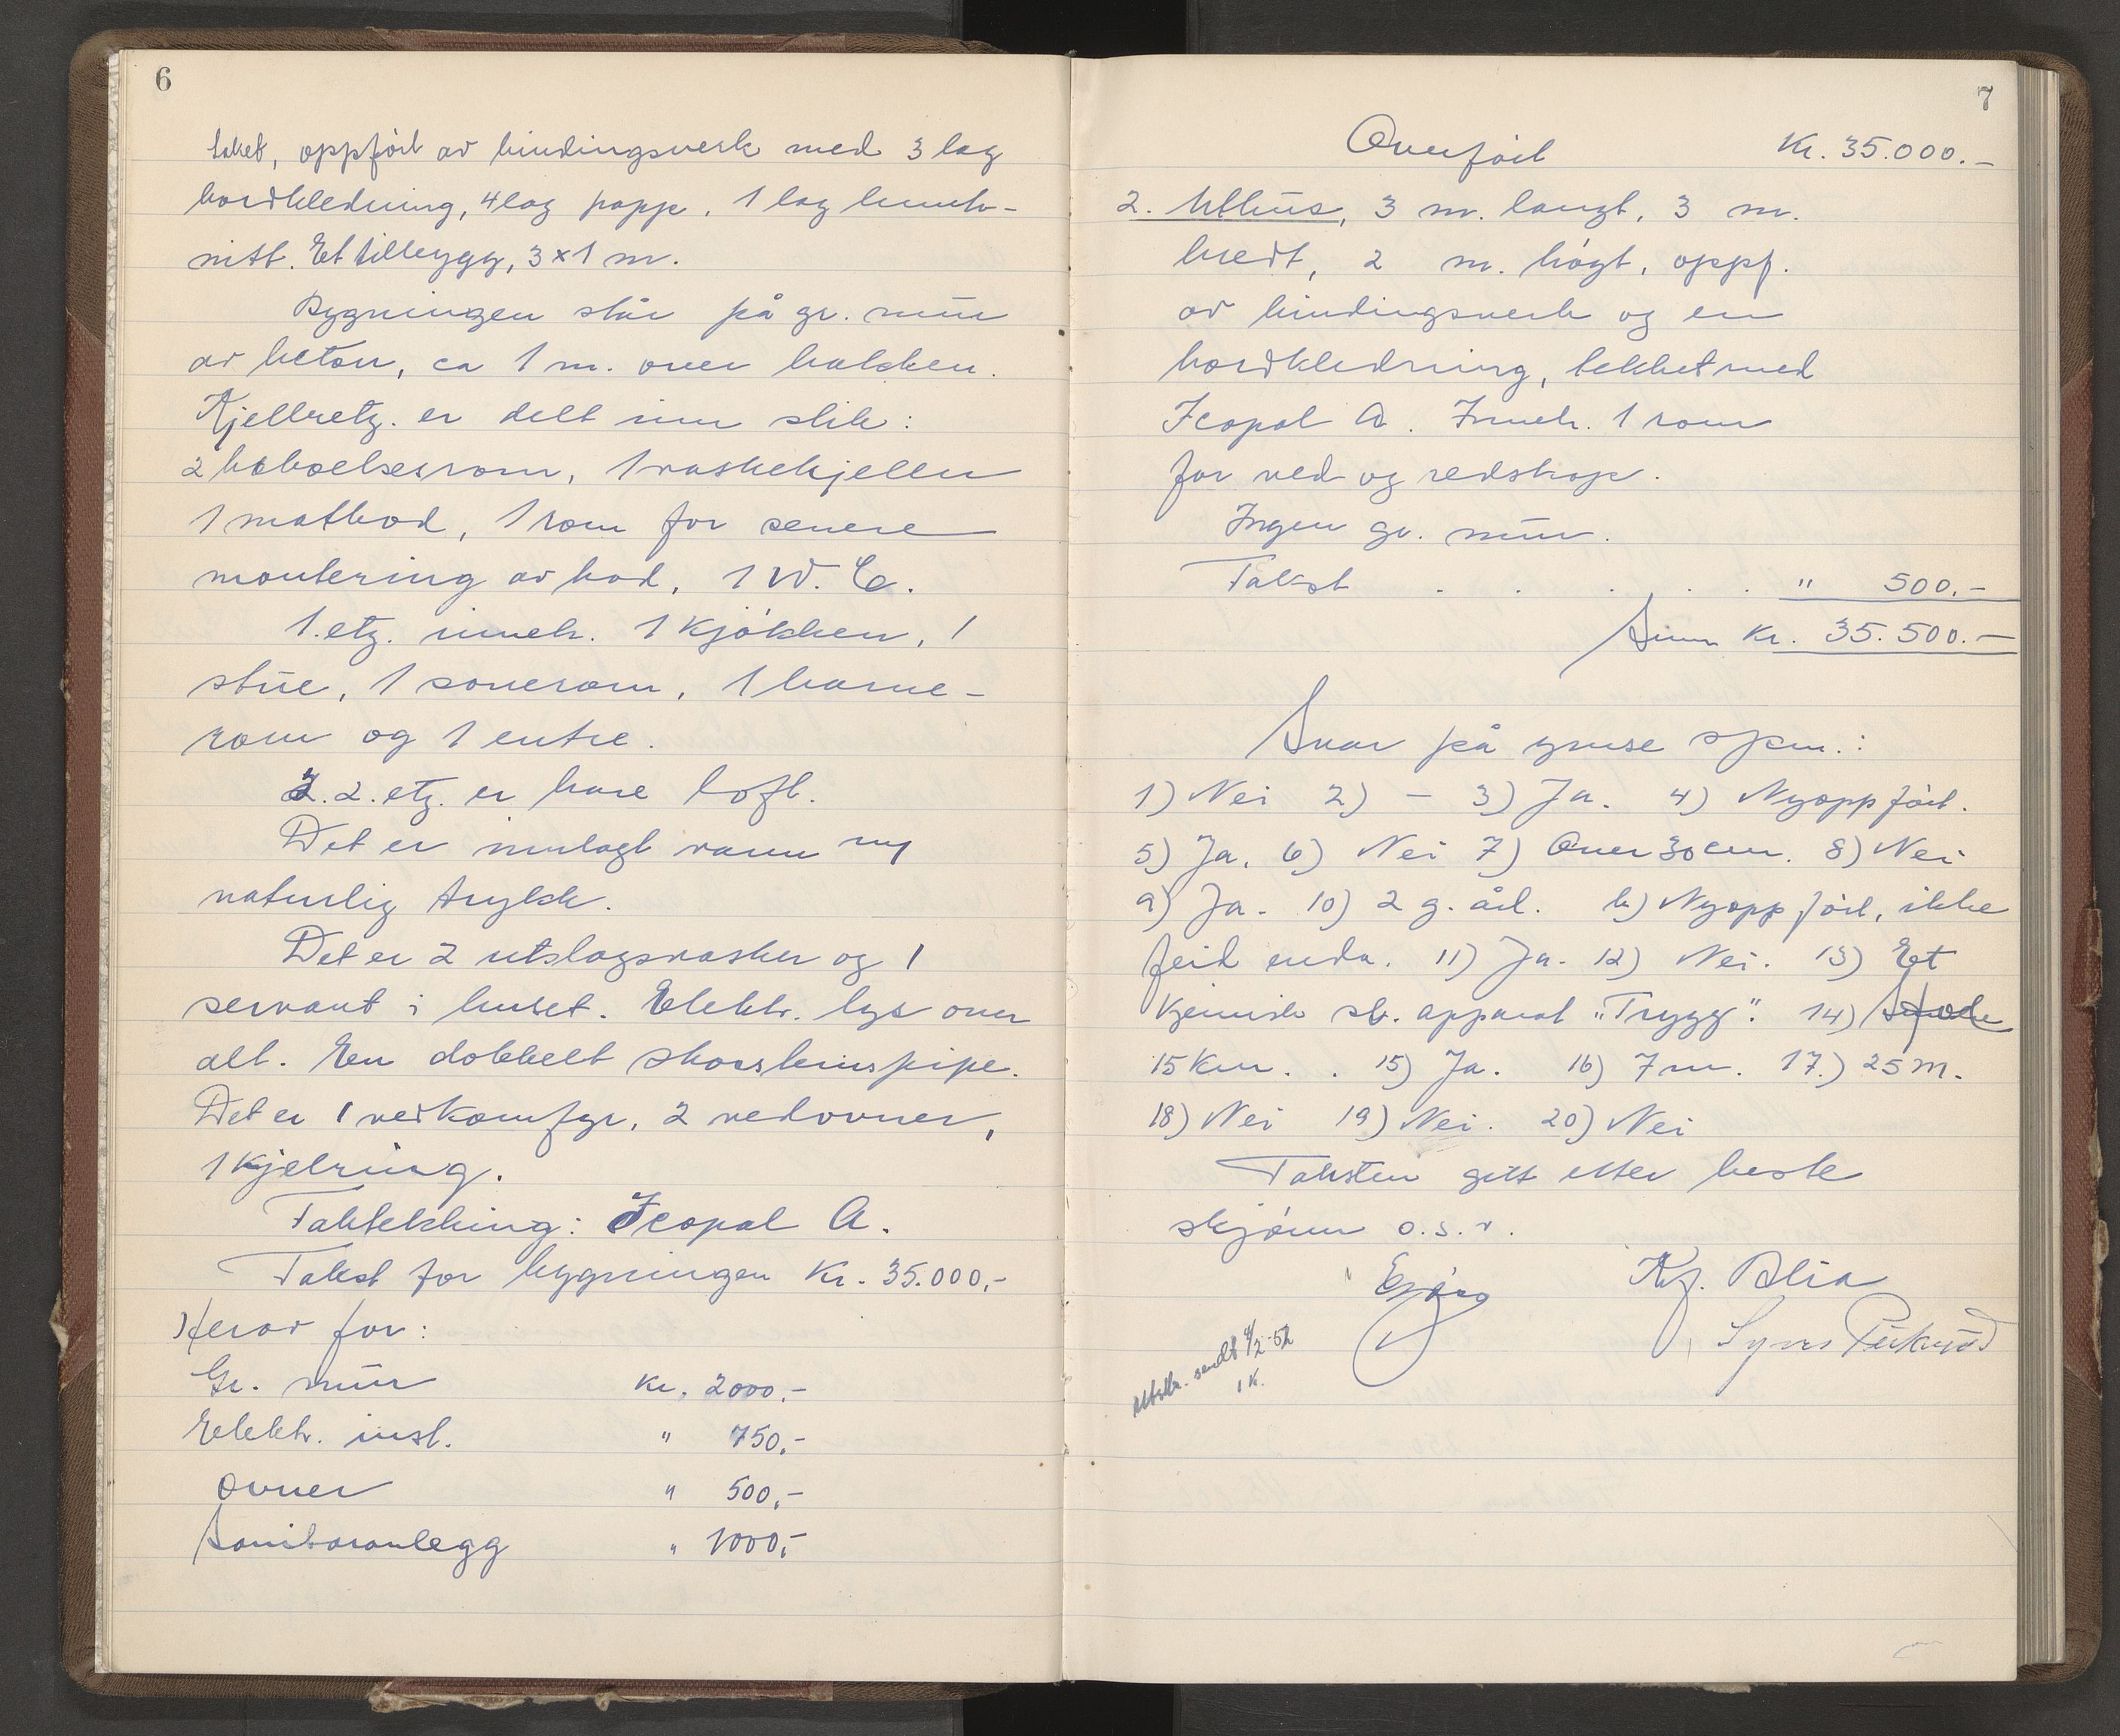 6
taket, oppført av bindingsverk med 3 lag
bordkledning, 4 lag papp, 1 lag hunto-
nitt. Et tilbygg, 3 x 1 m.
Bygningen står på gr. mur
av beton, ca 1 m. over bakken.
Kjelleretg. er delt inn slik:
2 beboelsesrom, 1 vaskekjeller
1 matbod, 1 rom for senere
montering av bad, 1 W. C.
1. etg. inneh. 1 kjøkken, 1
stue, 1 soverom, 1 barne-
rom og 1 entre.
2. etg. er bare loft.
Det er innlagt vann m/
naturlig trykk.
Det er 2 utslagsvasker og 1
servant i huset. Elektr. lys over
alt. En dobbelt skorsteinspipe.
Det er 1 vedkomfyr, 2 vedovner,
1 kjelring.
Taktekking: Icopal A.
Takst for bygningen Kr. 35.000,-
Herav for:
Gr. mur kr. 2000,-
Elektr. inst. " 750,-
Ovner " 500,-
Sanitæranlegg " 1000,-
7
Overført Kr. 35.000.-
2. Uthus, 3 m. langt, 3 m.
bredt, 2 m. høgt, oppf.
av bindingsverk og en
bordkledning, tekket med
Icopal A. Inneh. 1 rom
for ved og redskap.
Ingen gr. mur.
Takst . . . . . " 500.-
Sum Kr. 35.500.-
Svar på ymse spm.:
1) Nei 2) - 3) Ja. 4) Nyoppført.
5) Ja. 6) Nei 7) Over 30 cm. 8) Nei
9) Ja. 10) 2 g. årl. b) Nyoppført, ikke
feid enda. 11) Ja. 12) Nei. 13) Et
kjemisk sl. apparat "Trygg". 14)
15 km. . 15) Ja. 16) 7 m. 17.) 25 m.
18) Nei 19) Nei. 20) Nei
Taksten gitt etter beste
skjønn o.s.v.
Kr. Alia
Syver
Utskr. sendt 4/2-52
1 K.